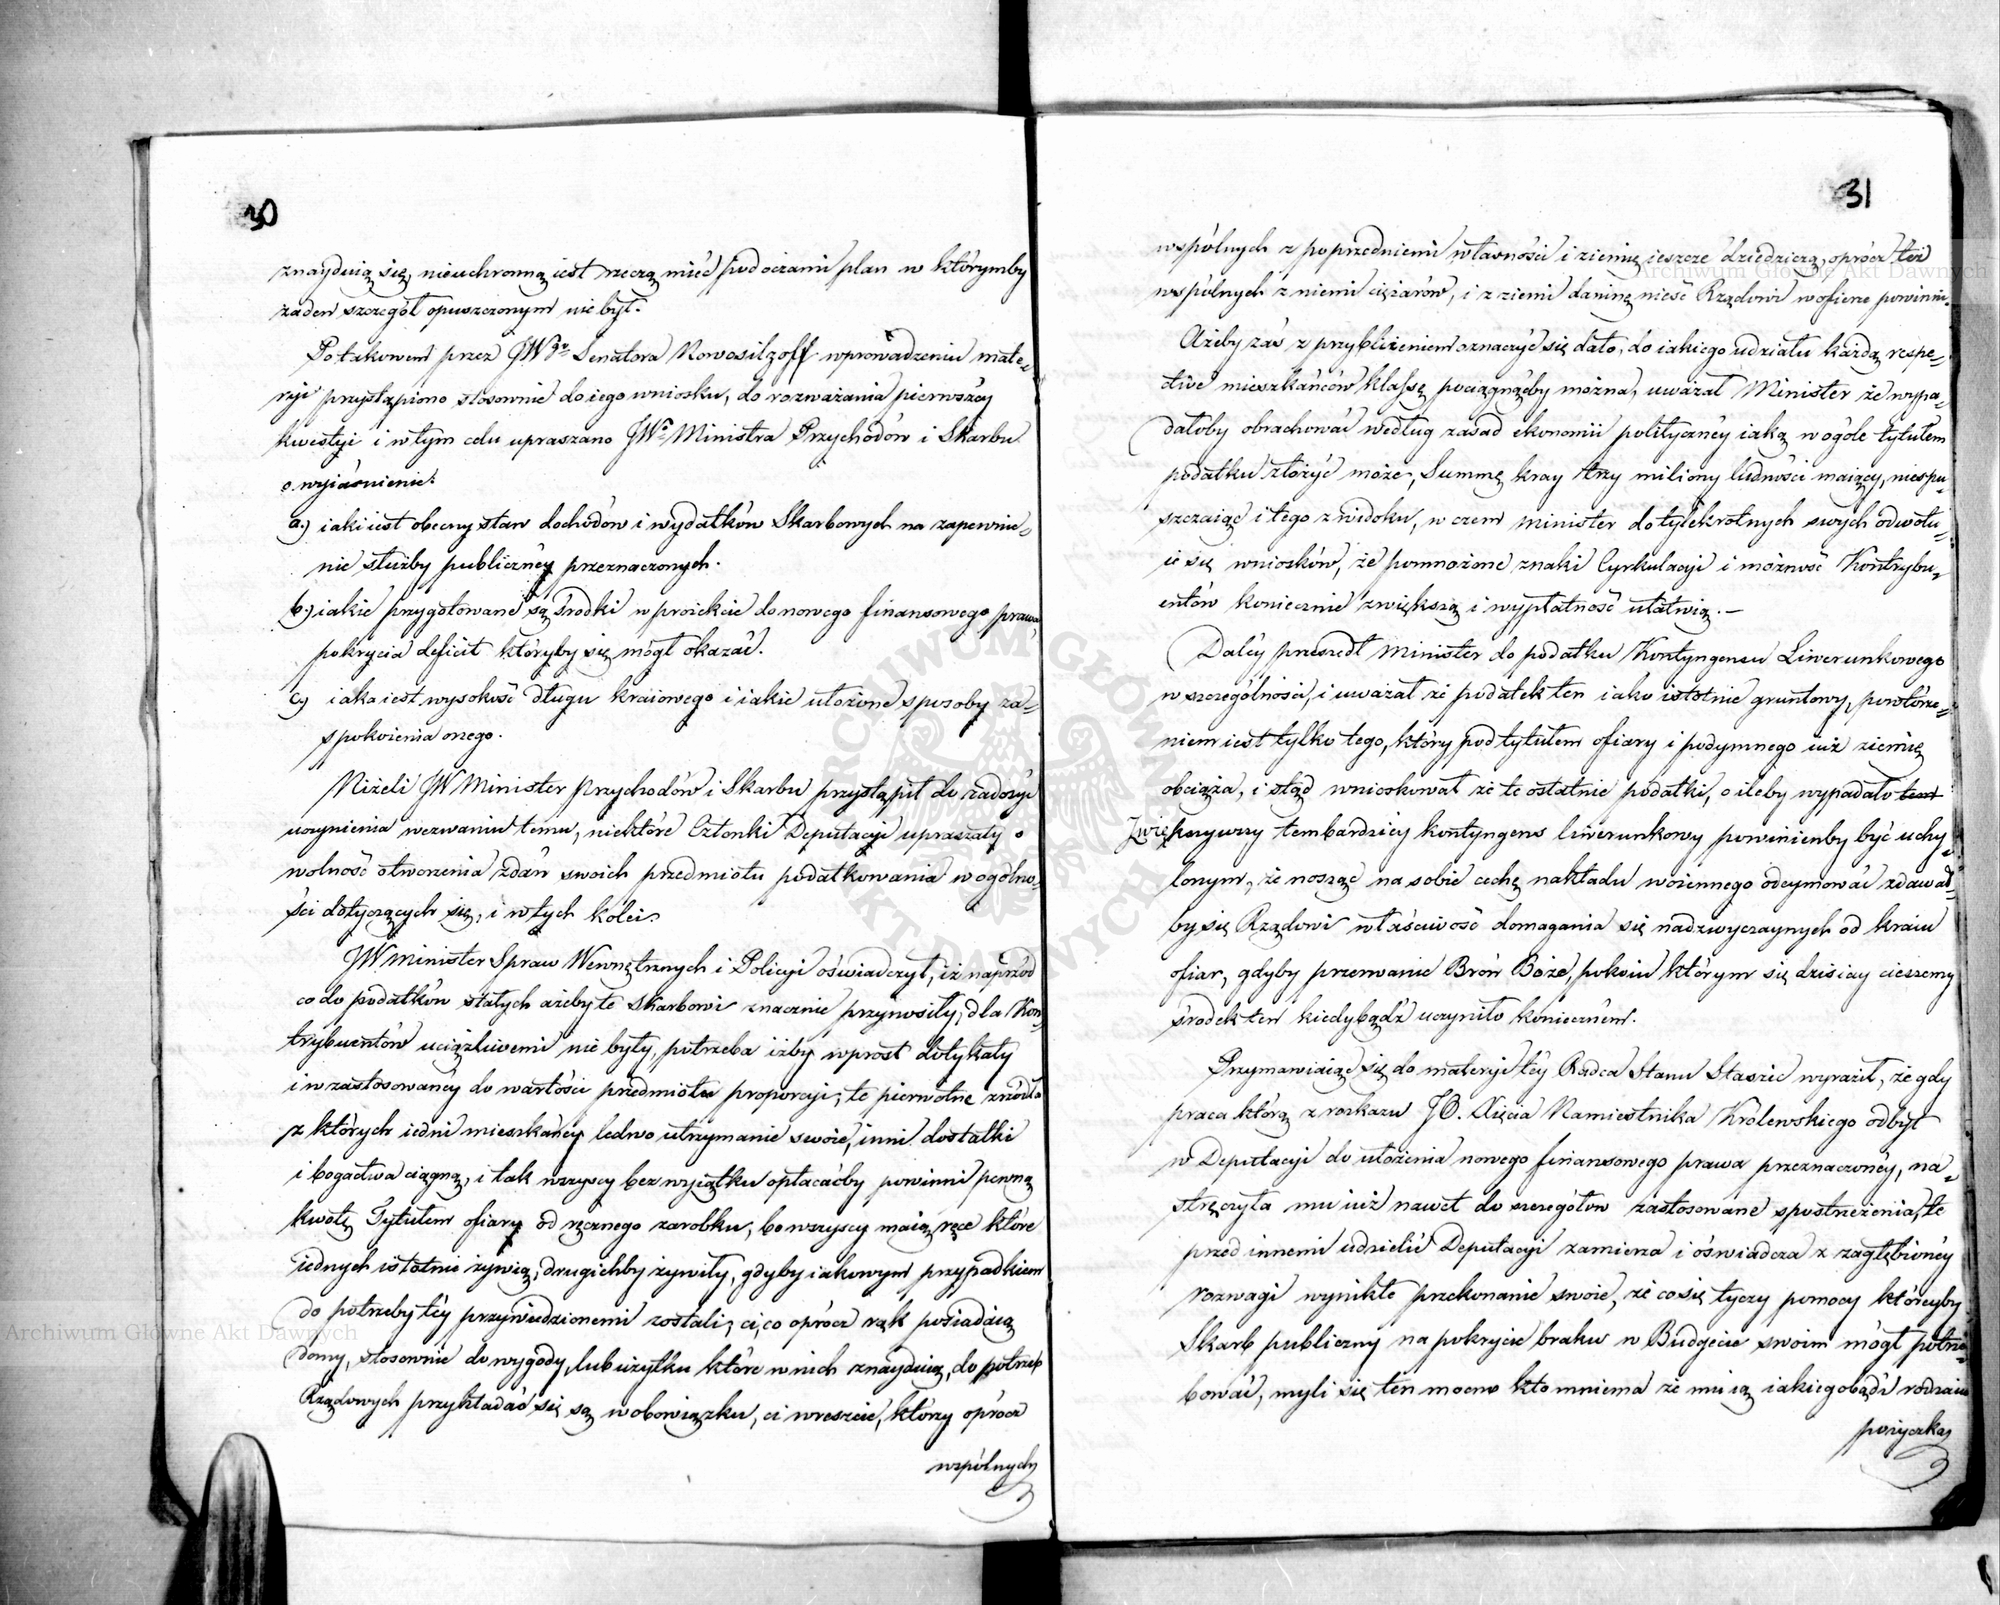 30
znayduią się, nieuchronną iest rzeczą mieć pod oczami plan w którymby
żaden szczegół opuszczonym nie był.
Po takowem przez JWgo Senatora Nowosilzoff wprowadzeniu mate-
ryi przystąpiono stosownie do iego wniosku, do rozważania pierwszéy
kwestyi i w tym celu upraszano JWo Ministra Przychodów i Skarbu
o wyiaśnienie:
a.) iaki iest obecny stan dochodów i wydatków Skarbowych na zapewnie-
nie służby publicznéy przeznaczonych.
b.) iakie przygotowane są środki w proiekcie do nowego finansowego prawa,
pokrycia deficit któryby się mógł okazać.
c.) iaka iest wysokość długu kraiowego i iakie ułożone sposoby za-
spokoienia onego.
Niżeli JW Minister Przychodów i Skarbu przystąpił do zadosyć
uczynienia wezwaniu temu, niektóre Członki Deputacyi upraszały o
wolność otworzenia zdań swoich przedmiotu podatkowania w ogólno-
ści dotyczących się, i w tych kolei.
JW Minister Spraw Wewnętrznych i Policyi oświadczył, iż naprzód
co do podatków stałych ażeby te Skarbowi znacznie przynosiły, dla Kon-
trybuentów uciążliwemi nie były, potrzeba iżby wprost dotykały
i w zastosowanéy do wartości przedmiotu proporcyi, te pierwotne zrzódła
z których iedni mieszkańcy ledwo utrzymanie swoie, inni dostatki
i bogactwa ciągną, i tak wszyscy bez wyiątku opłacaćby powinni pewną
kwotę Tytułem ofiary od ręcznego zarobku, bo wszyscy maią ręce które
iednych istotnie żywią, drugichby żywiły, gdyby iakowym przypadkiem
do potrzeby téy przywiedzionemi zostali, ci, co oprócz rąk posiadaią
domy, stosownie do wygody, lub użytku które w nich znayduią, do potrzeb
Rządowych przykładać się są w obowiązku, ci wreszcie, którzy oprócz
wspólnych
31
wspólnych z poprzedniemi własności i ziemię ieszcze dziedziczą, oprócz też
wspólnych z niemi ciężarów, i z ziemi daninę nieść Rządowi w ofierze powinni.
Ażeby zaś z przybliżeniem oznaczyć się dało, do iakiego udziału każdą respe-
ctive mieszkańców klassę pociągnąćby można, uważał Minister że wypa-
dałoby obrachować według zasad ekonomii polityczney iaką w ogóle tytułem
podatku złożyć może, Summę kray trzy miliony ludności maiący, niespu-
szczaiąc i tego z widoku, w czem Minister do tylekrotnych swych odwołu-
ie się wniosków, że pomnożone znaki Cyrkulacyi i możność Kontrybu-
entów koniecznie zwiększą i wypłatność ułatwią. —
Daléy przeszedł Minister do podatku Kontyngensu Liwerunkowego
w szczególności, i uważał że podatek ten iako istotnie gruntowy, powtórze-
niem iest tylko tego, który pod tytułem ofiary i podymnego iuż ziemię
obciąża, i stąd wnioskował że te ostatnie podatki, o ileby wypadało tem
zwiększywszy tembardziey kontyngens liwerunkowy powinienby być uchy-
lonym, że nosząc na sobie cechę nakładu woiennego odeymować zdawał-
by się Rządowi właściwość domagania się nadzwyczaynych od kraiu
ofiar, gdyby przerwanie Broń Boże, pokoiu którym się dzisiay cieszemy
środek ten kiedybądź uczyniło koniecznem.
Przymawiaiąc się do materyi téy Radca Stanu Staszic wyraził, że gdy
praca którą z rozkazu JO. Xięcia Namiestnika Królewskiego odbył
w Deputacyi do ułożenia nowego finansowego prawa przeznaczonéy, na-
stręczyła mu iuż nawet do szczegółów zastosowane spostrzeżenia, te
przed innemi udzielić Deputacyi zamierza i oświadcza z zagłębionéy
rozwagi wynikłe przekonanie swoie, że co się tyczy pomocy któreyby
Skarb publiczny na pokrycie braku w Budgecie swoim mógł potrze-
bować, myli się ten mocno kto mniema że mu ią iakiegobądź rodzaiu
pożyczka
Archiwum Główne Akt Dawnych
Archiwum Główne Akt Dawnych
ARCHIWUM GŁÓWNE AKT DAWNYCH